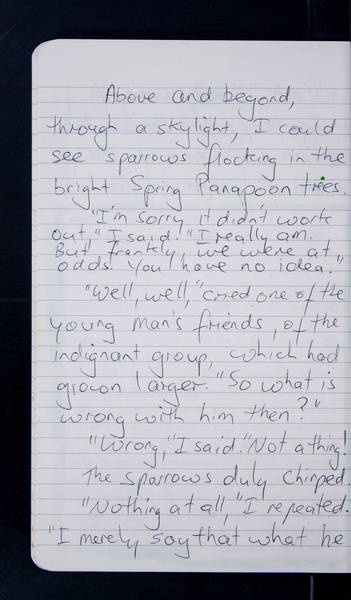 Above and beyond,
through a skylight, I could
see sparrows flocking in the
bright Spring Panapoon trees.
"I'm sorry it didn't work
out," I said. "I really am.
But frankly, we were at
odds. You have no idea."
"Well, well," cried one of the
young man's friends, of the
indignant group, which had
grown larger. "So what is
wrong with him then?"
"Wrong," I said. "Not a thing!
The sparrows duly chirped.
"Nothing at all," I repeated.
"I merely say that what he